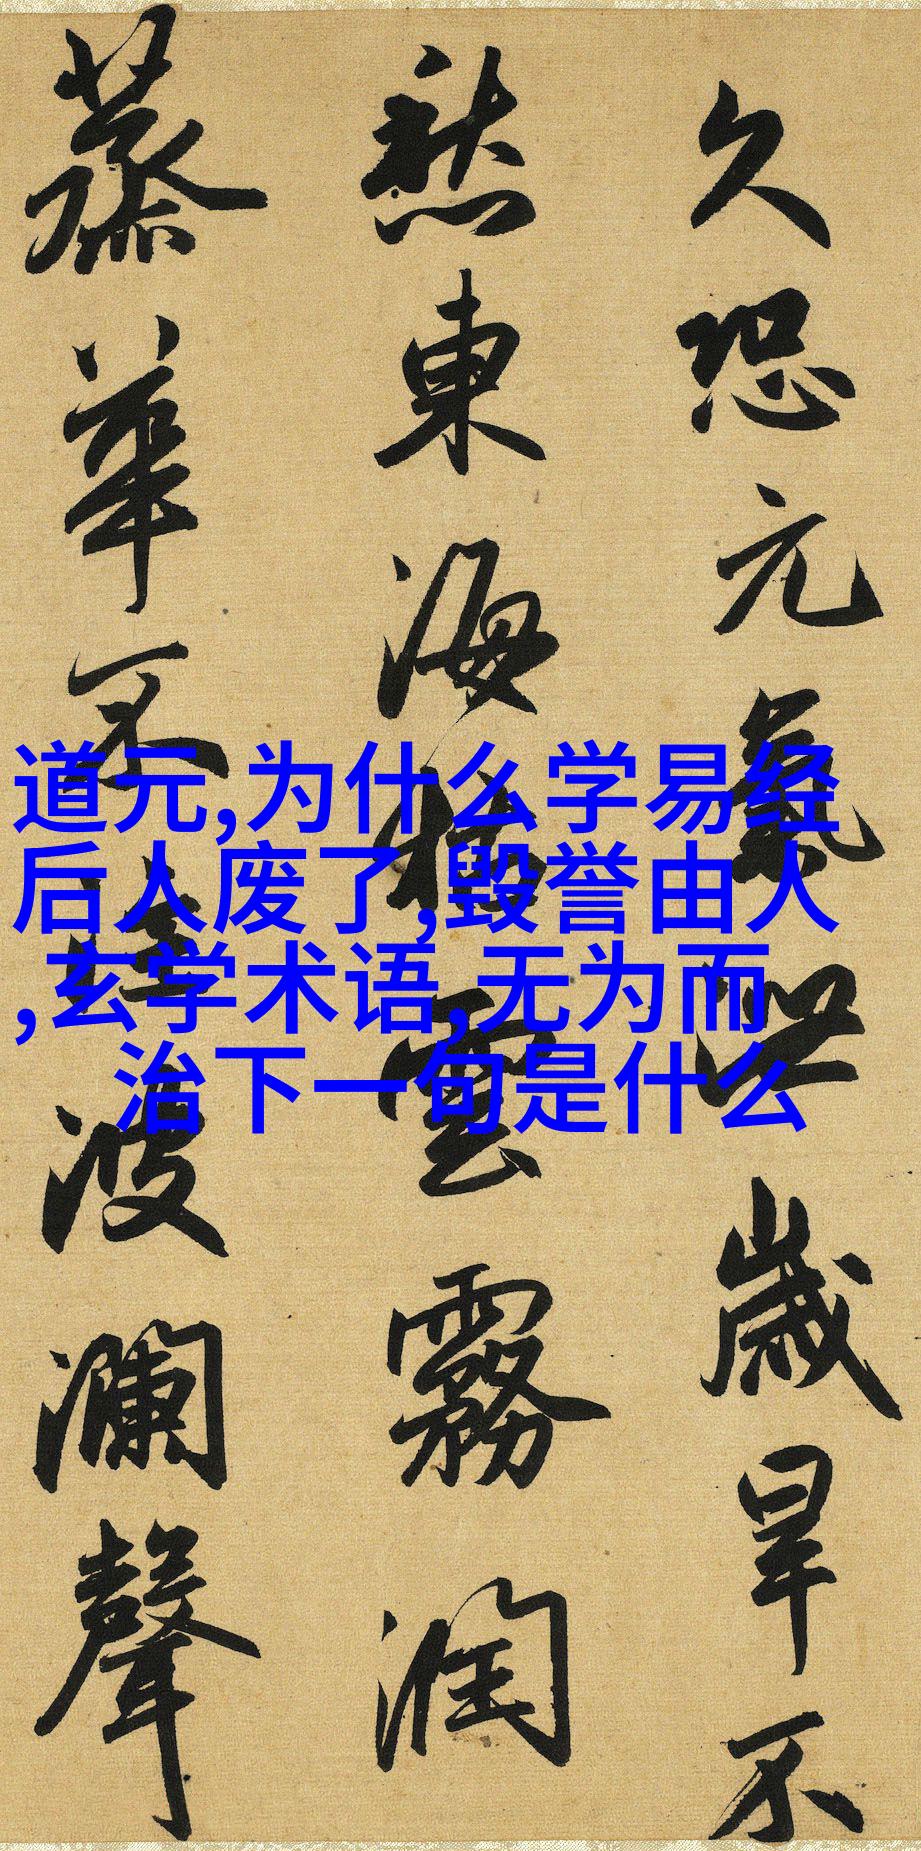 久恐元氣泄歲旱不
愁東海枯雲霧潤
蒸華不注波瀾聲
道元,为什么学易经
后人废了,毁誉由人
,玄学术语,无为而
治下一句是什么